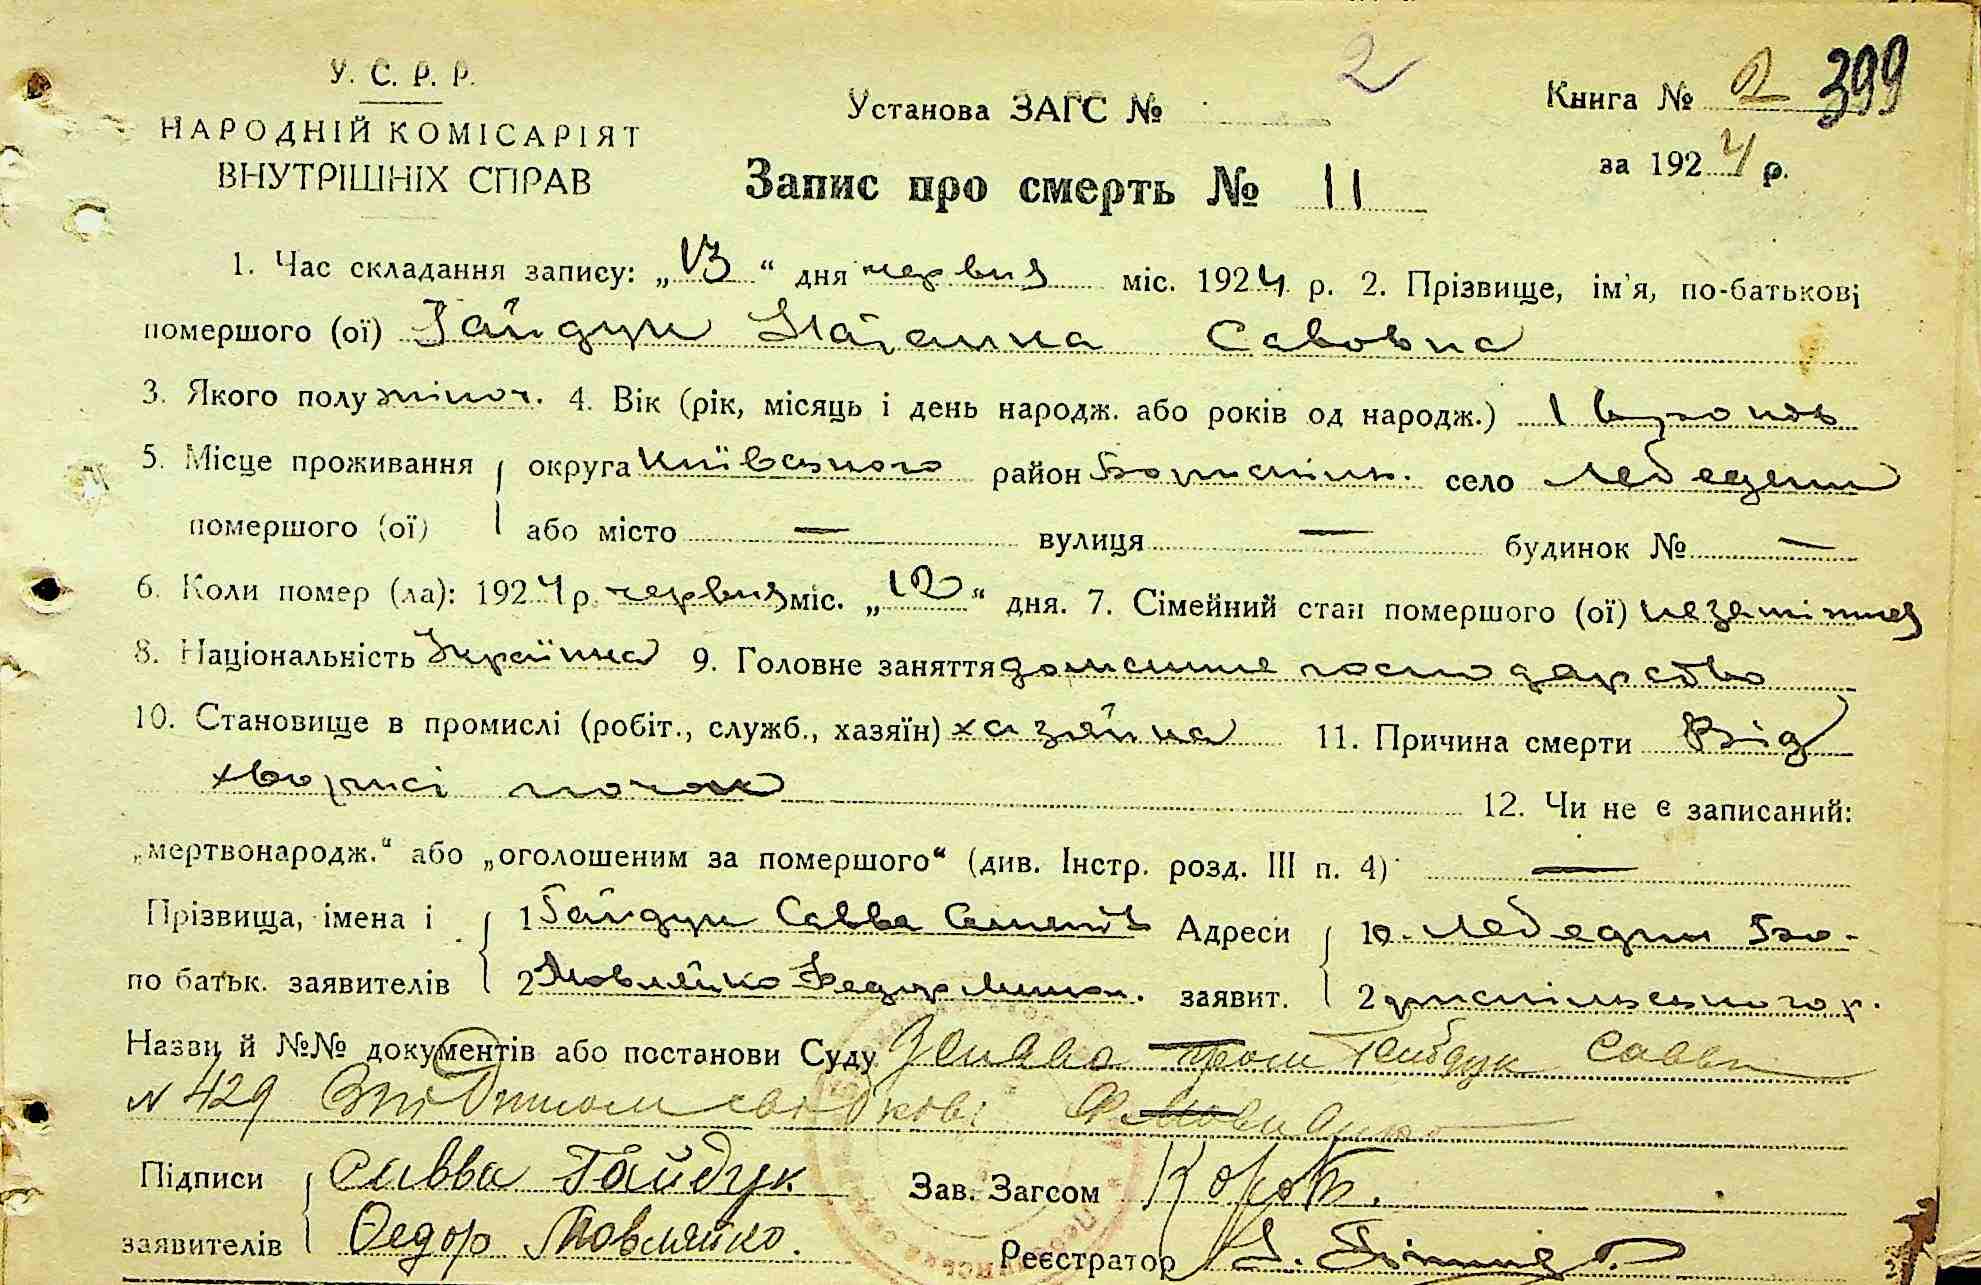 У. С. Р. Р.
НАРОДНІЙ КОМІСАРІЯТ
ВНУТРІШНІХ СПРАВ
Установа ЗАГС № 2
Книга № 2 399
за 1924 р.
Запис про смерть № 11
1. Час складання запису: „13“ дня червня міс. 1924 р. 2. Прізвище, ім'я, по-батькові
помершого (ої) Гайдук Савовна
3. Якого полу жіноч. 4. Вік (рік, місяць і день народж. або років од народж.) 1
5. Місце проживання округа Київського район село Лебедин
помершого (ої) або місто — вулиця — будинок № —
6. Коли помер (ла): 1924 р. червня міс. „12“ дня. 7. Сімейний стан помершого (ої) незаміжня
8. Національність Українка 9. Головне заняття домашнє господарство
10. Становище в промислі (робіт., служб., хазяїн) хазяйка 11. Причина смерти Від
хворисі почок 12. Чи не є записаний:
„мертвонародж.“ або „оголошеним за помершого“ (див. Інстр. розд. III п. 4) —
Прізвища, імена і 1 Гайдук Савва Адреси 1 Лебедин Бо-
по батьк. заявителів 2 Мовляйко Федор заявит. 2 риспільського р.
Назви й №№ документів або постанови Суду Гайдук Савви
№ 429
Підписи Савва Гайдук Зав. Загсом
заявителів Федор Мовляйко. Реєстратор